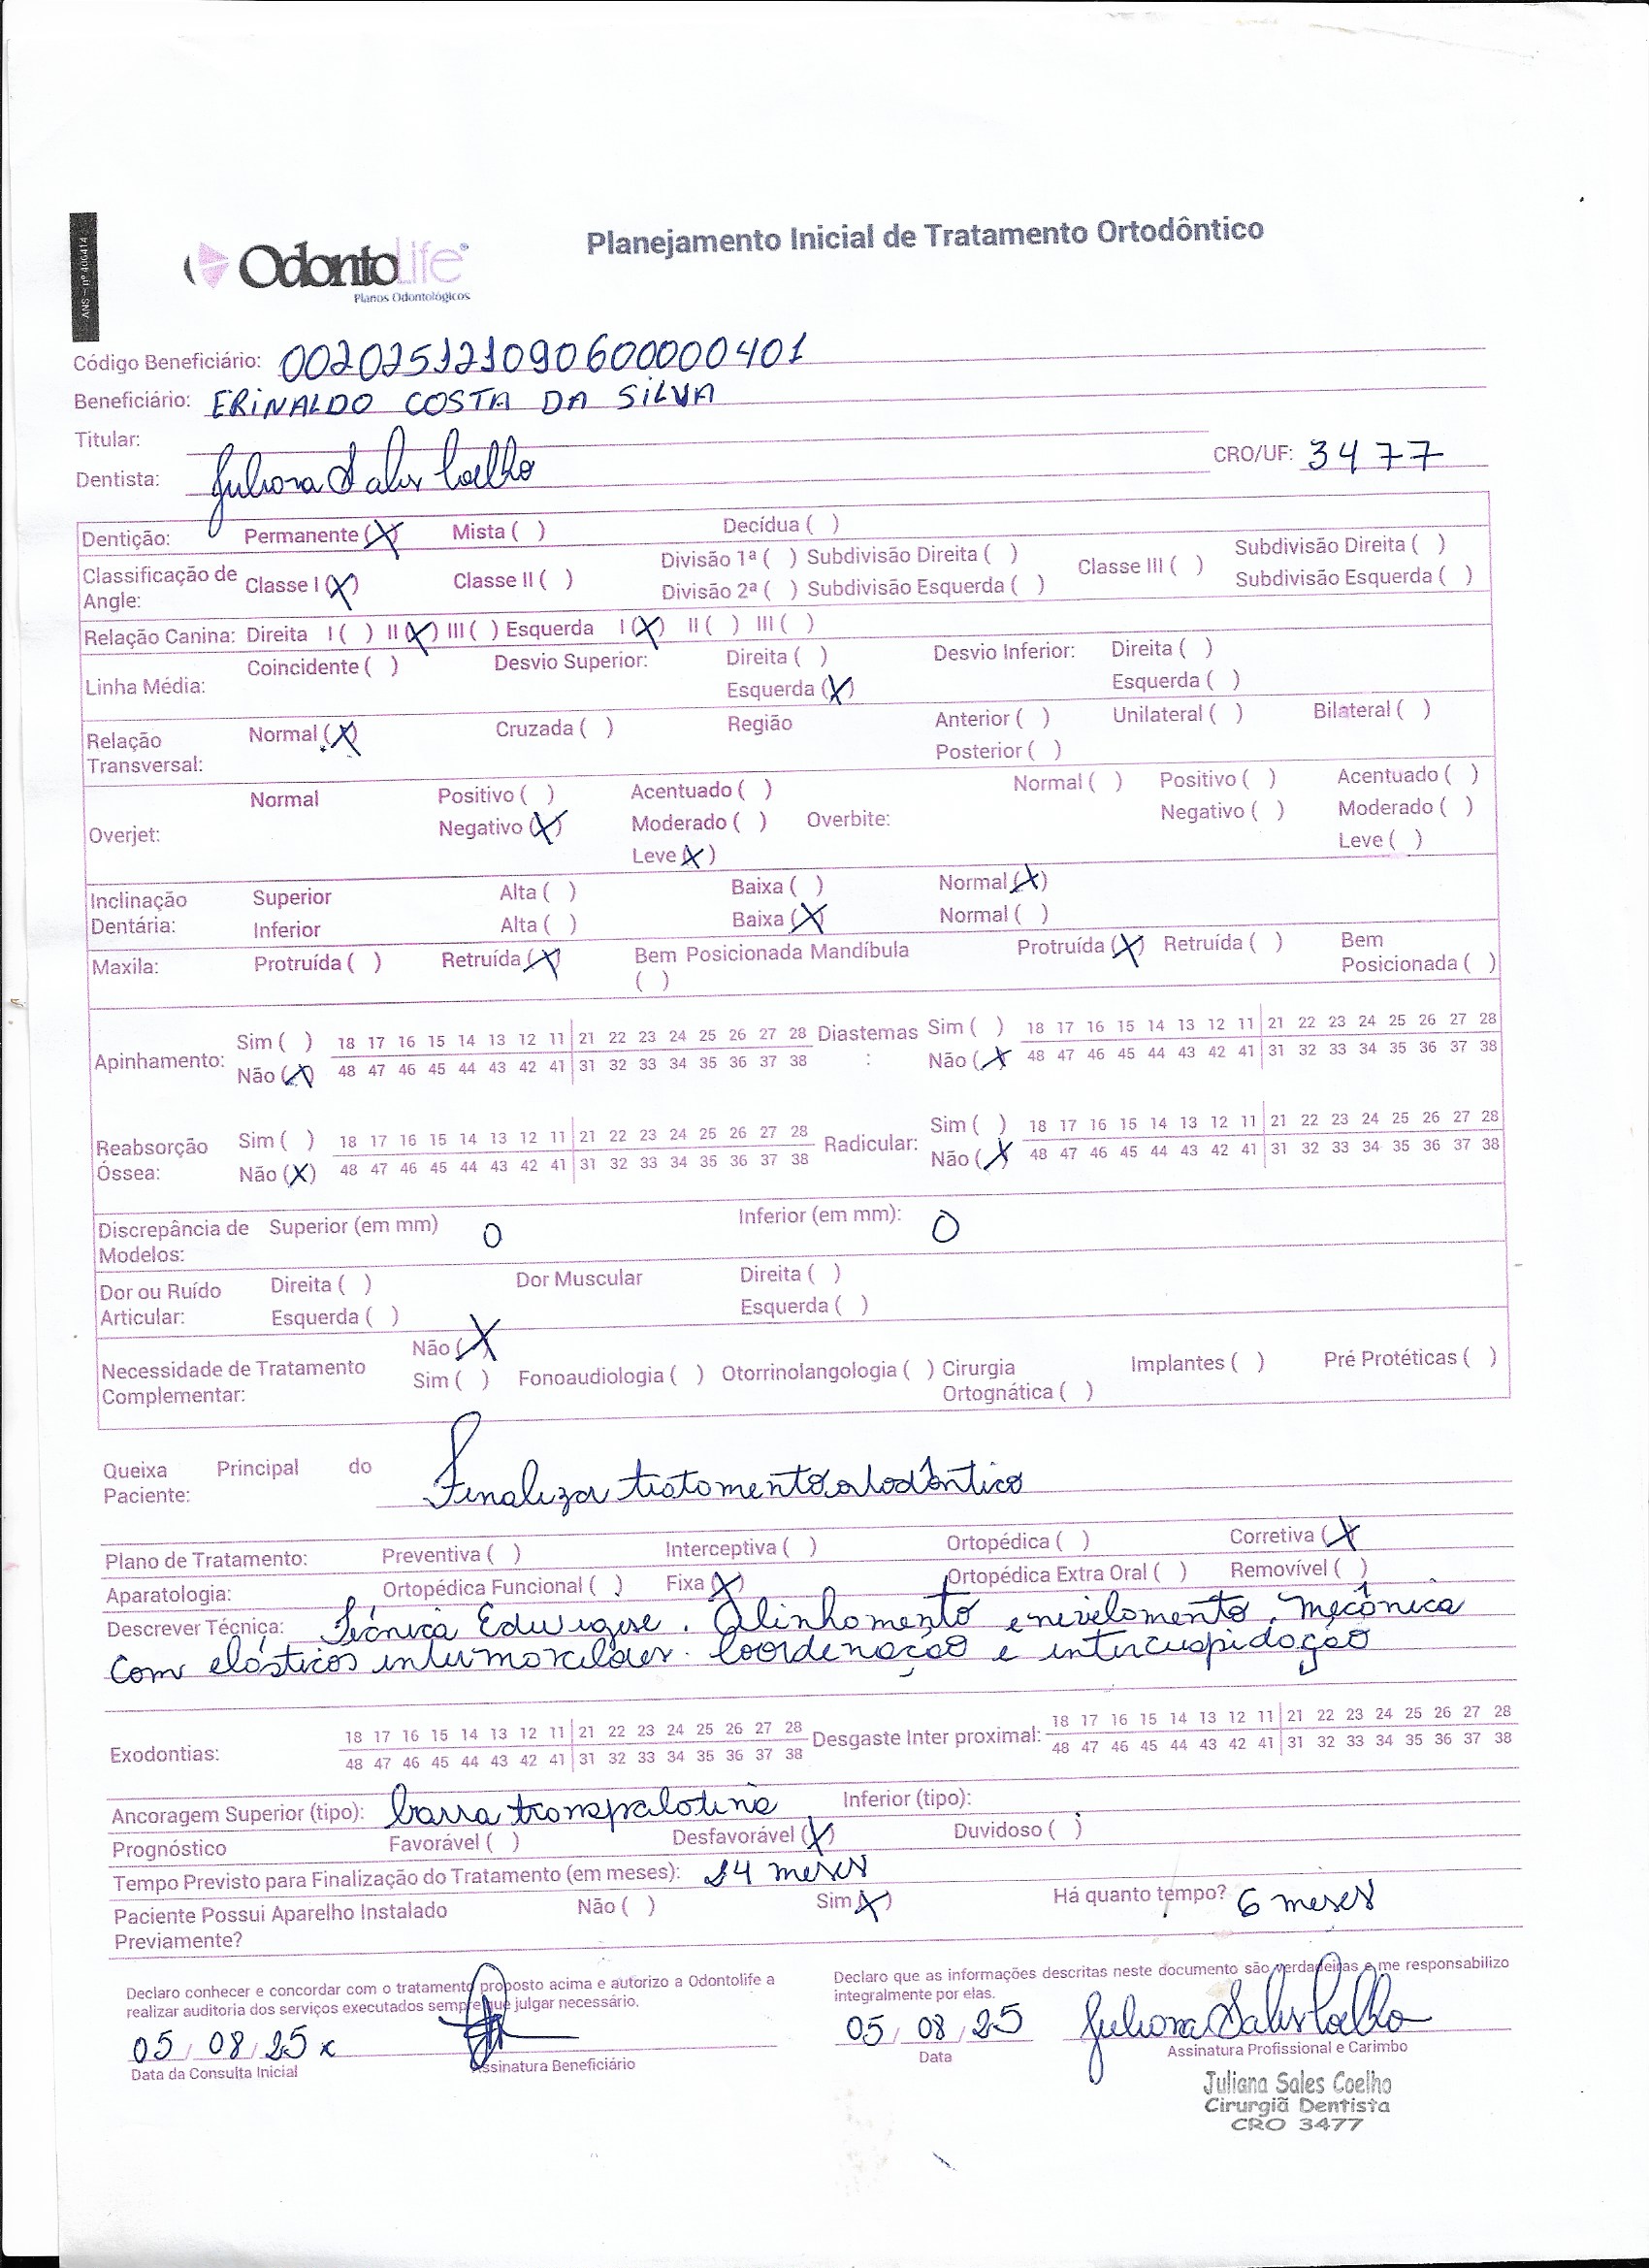 ANS - nº 406414
OdontoLife®
Planos Odontológicos
Planejamento Inicial de Tratamento Ortodôntico
Código Beneficiário: 00202512109060000401
Beneficiário: ERINALDO COSTA DA SILVA
Titular:
Dentista: Juliana Sales Coelho CRO/UF: 3477
Dentição: Permanente (X) Mista ( ) Decídua ( )
Classificação de Angle: Classe I (X) Classe II ( ) Divisão 1ª ( ) Subdivisão Direita ( ) Classe III ( ) Subdivisão Direita ( )
Divisão 2ª ( ) Subdivisão Esquerda ( ) Subdivisão Esquerda ( )
Relação Canina: Direita I ( ) II (X) III ( ) Esquerda I (X) II ( ) III ( )
Linha Média: Coincidente ( ) Desvio Superior: Direita ( ) Desvio Inferior: Direita ( )
Esquerda (X) Esquerda ( )
Relação Transversal: Normal (X) Cruzada ( ) Região Anterior ( ) Unilateral ( ) Bilateral ( )
Posterior ( )
Overjet: Normal Positivo ( ) Acentuado ( ) Overbite: Normal ( ) Positivo ( ) Acentuado ( )
Negativo (X) Moderado ( ) Negativo ( ) Moderado ( )
Leve (X) Leve ( )
Inclinação Dentária: Superior Alta ( ) Baixa ( ) Normal (X)
Inferior Alta ( ) Baixa (X) Normal ( )
Maxila: Protruída ( ) Retruída (X) Bem Posicionada ( ) Mandíbula Protruída (X) Retruída ( ) Bem Posicionada ( )
Apinhamento: Sim ( ) 18 17 16 15 14 13 12 11 21 22 23 24 25 26 27 28 Diastemas : Sim ( ) 18 17 16 15 14 13 12 11 21 22 23 24 25 26 27 28
Não (X) 48 47 46 45 44 43 42 41 31 32 33 34 35 36 37 38 Não (X) 48 47 46 45 44 43 42 41 31 32 33 34 35 36 37 38
Reabsorção Óssea: Sim ( ) 18 17 16 15 14 13 12 11 21 22 23 24 25 26 27 28 Radicular: Sim ( ) 18 17 16 15 14 13 12 11 21 22 23 24 25 26 27 28
Não (X) 48 47 46 45 44 43 42 41 31 32 33 34 35 36 37 38 Não (X) 48 47 46 45 44 43 42 41 31 32 33 34 35 36 37 38
Discrepância de Modelos: Superior (em mm) 0 Inferior (em mm): 0
Dor ou Ruído Articular: Direita ( ) Dor Muscular Direita ( )
Esquerda ( ) Esquerda ( )
Necessidade de Tratamento Complementar: Não (X)
Sim ( ) Fonoaudiologia ( ) Otorrinolangologia ( ) Cirurgia Ortognática ( ) Implantes ( ) Pré Protéticas ( )
Queixa Principal do Paciente: Finalizar tratamento ortodôntico
Plano de Tratamento: Preventiva ( ) Interceptiva ( ) Ortopédica ( ) Corretiva (X)
Aparatologia: Ortopédica Funcional ( ) Fixa (X) Ortopédica Extra Oral ( ) Removível ( )
Descrever Técnica: Técnica Edwigse. Alinhamento e nivelamento, mecânica
com elásticos intermaxilares. Coordenação e intercuspidação
Exodontias: 18 17 16 15 14 13 12 11 21 22 23 24 25 26 27 28 Desgaste Inter proximal: 18 17 16 15 14 13 12 11 21 22 23 24 25 26 27 28
48 47 46 45 44 43 42 41 31 32 33 34 35 36 37 38 48 47 46 45 44 43 42 41 31 32 33 34 35 36 37 38
Ancoragem Superior (tipo): barra transpalatina Inferior (tipo):
Prognóstico Favorável ( ) Desfavorável (X) Duvidoso ( )
Tempo Previsto para Finalização do Tratamento (em meses): 24 meses
Paciente Possui Aparelho Instalado Previamente? Não ( ) Sim (X) Há quanto tempo? 6 meses
Declaro conhecer e concordar com o tratamento proposto acima e autorizo a Odontolife a
realizar auditoria dos serviços executados sempre que julgar necessário.
05/08/25 x
Data da Consulta Inicial Assinatura Beneficiário
Declaro que as informações descritas neste documento são verdadeiras e me responsabilizo
integralmente por elas.
05/08/25 Juliana Sales Coelho
Data Assinatura Profissional e Carimbo
Juliana Sales Coelho
Cirurgiã Dentista
CRO 3477